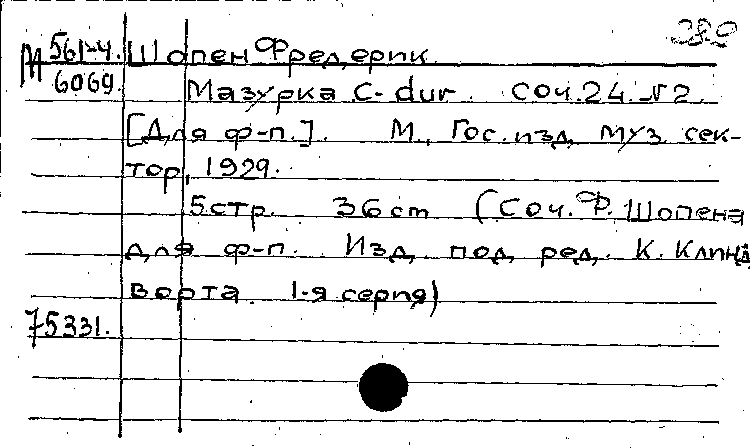 289
М 561-4. Шопен Фредерик.
6069. Мазурка C-dur. Соч. 24. №2.
[Для ф-п.]. М., Гос. изд. муз. сек-
тор, 1929.
5 стр. 36 cm (Соч. Ф. Шопена
для ф-п. Изд. под ред. К. Клинд
ворта. 1-я серия)
75331.